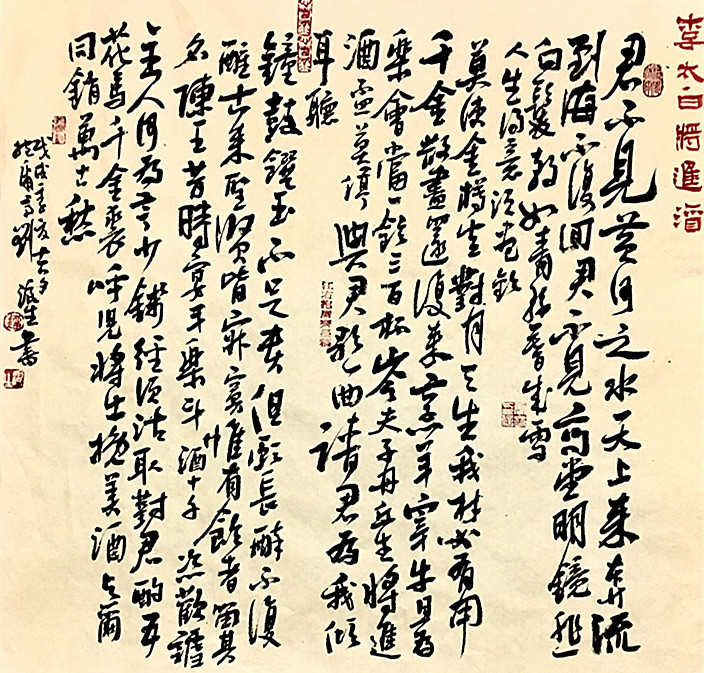 李太白將進酒
君不見黃河之水天上來奔流
到海不復回君不見高堂明鏡悲
白髮朝如青絲暮成雪
人生得意須盡歡
莫使金樽空對月天生我材必有用
千金散盡還復來烹羊宰牛且為
樂會當一飲三百杯岑夫子丹丘生將進
酒盃莫停與君歌一曲請君為我傾
耳聽
鐘鼓饌玉不足貴但願長醉不復
醒古來聖賢皆寂寞惟有飲者留其
名陳王昔時宴平樂斗酒十千恣歡謔
主人何為言少錢徑須沽取對君酌五
花馬千金裘呼兒將出換美酒與爾
同銷萬古愁
戊戌季
劉 生書